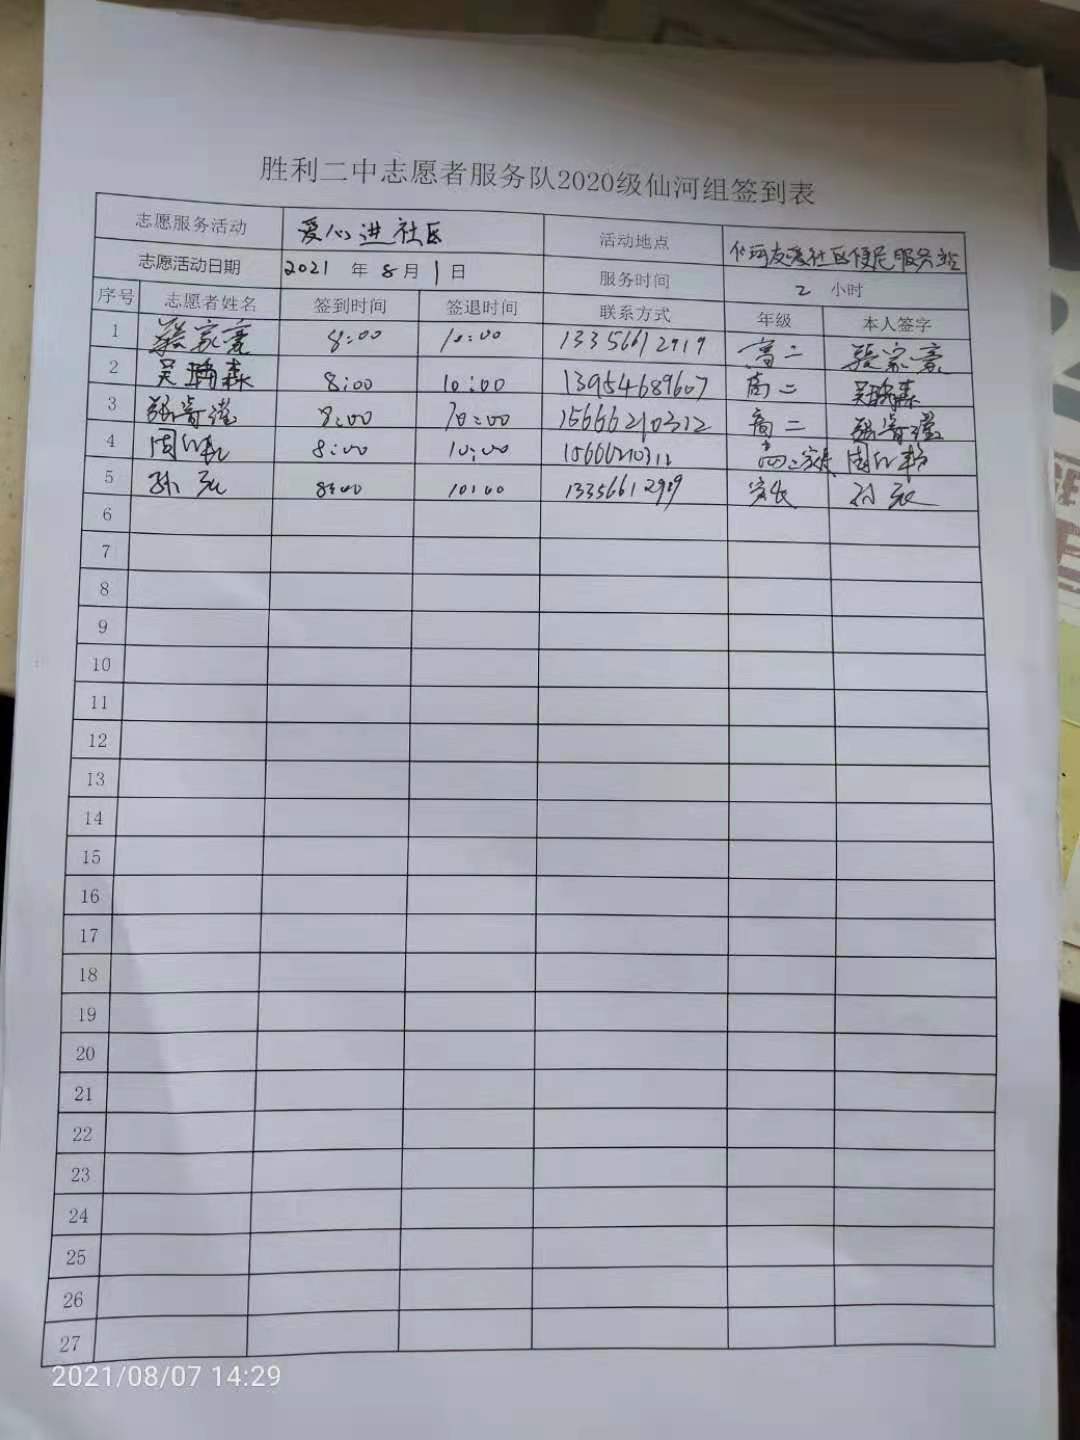 胜利二中志愿者服务队2020级仙河组签到表
志愿服务活动 爱心进社区 活动地点 仙河友爱社区便民服务站
志愿活动日期 2021 年 8 月 1 日 服务时间 2 小时
序号 志愿者姓名 签到时间 签退时间 联系方式 年级 本人签字
1 8:00 10:00 13356612919 高二
2 吴 森 8:00 10:00 13954689607 高二 吴 森
3 8:00 10:00 15666210312 高二
4 周 8:00 10:00 15666210312 高二家长 周
5 孙 8:00 10:00 13356612919 家长 孙
6
7
8
9
10
11
12
13
14
15
16
17
18
19
20
21
22
23
24
25
26
27
2021/08/07 14:29